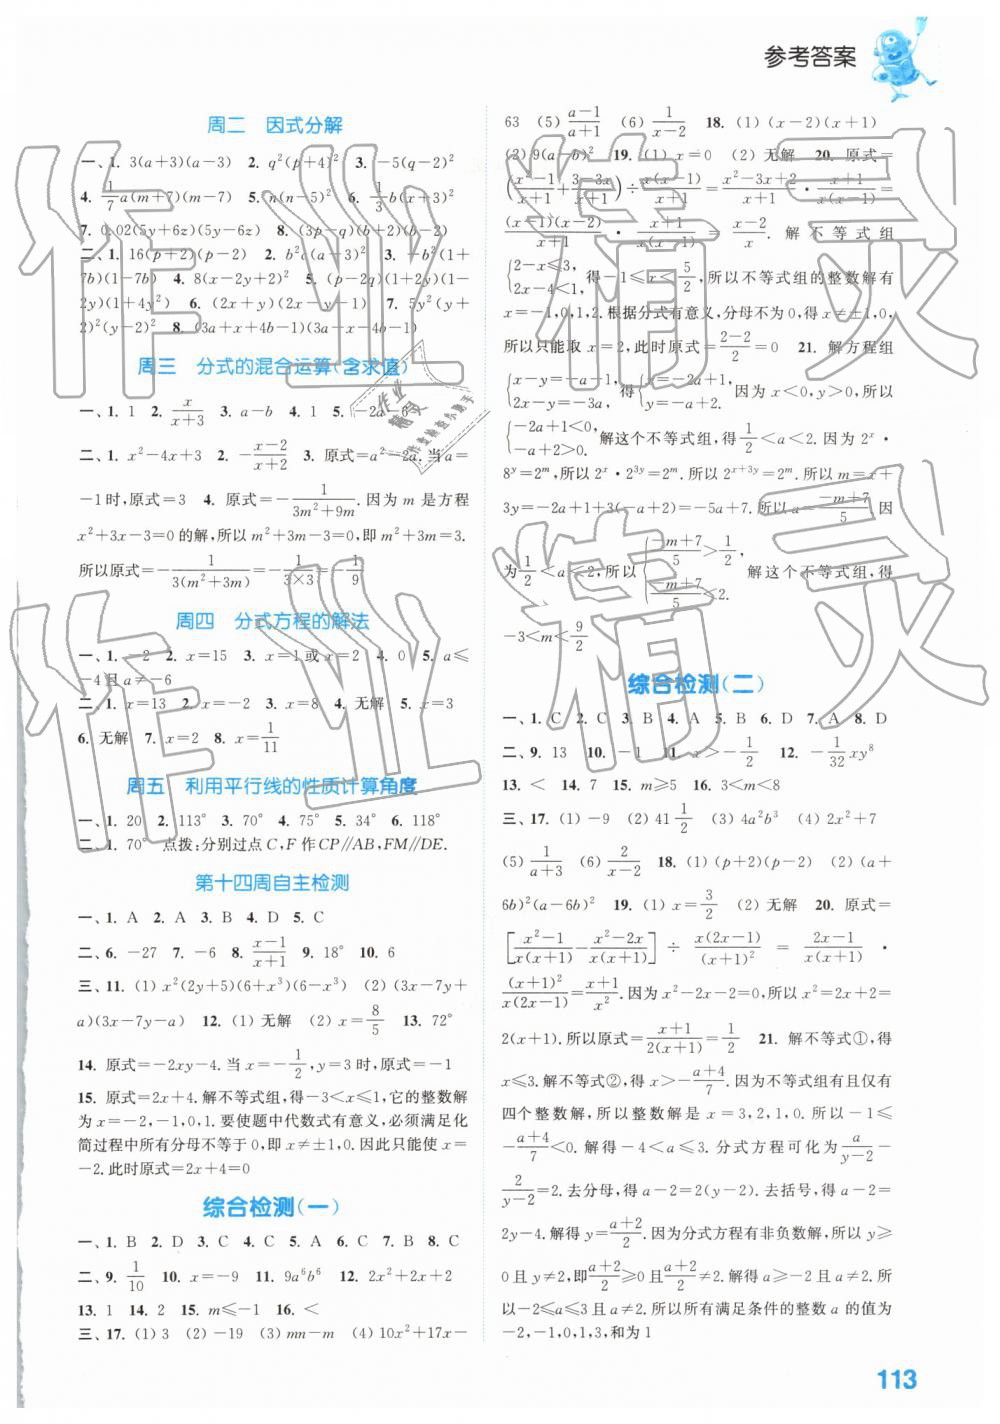 参考答案
周二 因式分解
一、1. 3(a+3)(a-3) 2. q²(p+4)² 3. -5(q-2)²
4. 1/7 a(m+7)(m-7) 5. n(n-5)² 6. 1/3 b(x+3)²
7. 0.02(5y+6z)(5y-6z) 8. (3p-q)(b+2)(b-2)
二、1. 16(p+2)(p-2) 2. b²c(a+3)² 3. -(1+
7b)(1-7b) 4. 8(x-2y+2)² 5. (p-2q)(1+2y)(1-
2y)(1+4y²) 6. (2x+y)(2x-y+1) 7. 5y²(y+
2)²(y-2)² 8. (3a+x+4b-1)(3a-x-4b-1)
周三 分式的混合运算(含求值)
一、1. 1 2. x/(x+3) 3. a-b 4. 1 5. -2a-6
二、1. x²-4x+3 2. -(x-2)/(x+2) 3. 原式=a²-2a. 当a=
-1时,原式=3 4. 原式=-1/(3m²+9m). 因为 m 是方程
x²+3x-3=0的解,所以 m²+3m-3=0,即 m²+3m=3.
所以原式=-1/(3(m²+3m))=-1/(3×3)=-1/9
周四 分式方程的解法
一、1. -2 2. x=15 3. x=1或x=2 4. 0 5. a≤
-4且a≠-6
二、1. x=13 2. x=-2 3. x=8 4. 无解 5. x=3
6. 无解 7. x=2 8. x=1/11
周五 利用平行线的性质计算角度
一、1. 20 2. 113° 3. 70° 4. 75° 5. 34° 6. 118°
二、1. 70° 点拨:分别过点C,F作CP//AB,FM//DE.
第十四周自主检测
一、1. A 2. A 3. B 4. D 5. C
二、6. -27 7. -6 8. (x-1)/(x+1) 9. 18° 10. 6
三、11. (1) x²(2y+5)(6+x³)(6-x³) (2) (3x-7y+
a)(3x-7y-a) 12. (1) 无解 (2) x=8/5 13. 72°
14. 原式=-2xy-4. 当x=-1/2,y=3时,原式=-1
15. 原式=2x+4. 解不等式组,得-3<x≤1,它的整数解
为x=-2,-1,0,1. 要使题中代数式有意义,必须满足化
简过程中所有分母不等于0,即x≠±1,0. 因此只能使x=
-2. 此时原式=2x+4=0
综合检测(一)
一、1. B 2. D 3. C 4. C 5. A 6. C 7. B 8. C
二、9. 1/10 10. x=-9 11. 9a⁶b⁶ 12. 2x²+2x+2
13. 1 14. 2 15. m≤-1 16. <
三、17. (1) 3 (2) -19 (3) mn-m (4) 10x²+17x-
63 (5) (a-1)/(a+1) (6) 1/(x-2) 18. (1) (x-2)(x+1)
(2) 9(a-b)² 19. (1) x=0 (2) 无解 20. 原式=
((x²-1)/(x+1)+(3-3x)/(x+1))÷x(x-1)/(x+1)=(x²-3x+2)/(x+1)·(x+1)/(x(x-1))=
(x-1)(x-2)/(x+1)·(x+1)/(x(x-1))=(x-2)/x. 解不等式组
{2-x≤3, 2x-4<1, 得-1≤x<5/2,所以不等式组的整数解有
x=-1,0,1,2. 根据分式有意义,分母不为0,得x≠±1,0,
所以只能取x=2,此时原式=(2-2)/2=0 21. 解方程组
{x-y=-a-1, 2x-y=-3a, 得{x=-2a+1, y=-a+2. 因为x<0,y>0,所以
{-2a+1<0, -a+2>0. 解这个不等式组,得1/2<a<2. 因为2ˣ·
8ʸ=2ᵐ,所以2ˣ·2³ʸ=2ᵐ,所以2ˣ⁺³ʸ=2ᵐ. 所以m=x+
3y=-2a+1+3(-a+2)=-5a+7. 所以a=(-m+7)/5. 因
为1/2<a<2,所以{(-m+7)/5>1/2, (-m+7)/5<2. 解这个不等式组,得
-3<m<9/2
综合检测(二)
一、1. C 2. C 3. B 4. A 5. B 6. D 7. A 8. D
二、9. 13 10. -1 11. x>-1/2 12. -1/32 xy⁸
13. < 14. 7 15. m≥5 16. 3<m<8
三、17. (1) -9 (2) 41 1/2 (3) 4a²b³ (4) 2x²+7
(5) 1/(a+3) (6) 2/(x-2) 18. (1) (p+2)(p-2) (2) (a+
6b)²(a-6b)² 19. (1) x=3/2 (2) 无解 20. 原式=
[(x²-1)/(x(x+1))-(x²-2x)/(x(x+1))]÷x(2x-1)/(x+1)²=(2x-1)/(x(x+1))·
(x+1)²/(x(2x-1))=(x+1)/x². 因为x²-2x-2=0,所以x²=2x+2=
2(x+1). 所以原式=(x+1)/(2(x+1))=1/2 21. 解不等式①,得
x≤3. 解不等式②,得x>-(a+4)/7. 因为不等式组有且仅有
四个整数解,所以整数解是x=3,2,1,0. 所以-1≤
-(a+4)/7<0. 解得-4<a≤3. 分式方程可化为a/(y-2)-
2/(y-2)=2. 去分母,得a-2=2(y-2). 去括号,得a-2=
2y-4. 解得y=(a+2)/2. 因为分式方程有非负数解,所以y≥
0且y≠2,即(a+2)/2≥0且(a+2)/2≠2. 解得a≥-2且a≠2. 所
以-2≤a≤3且a≠2. 所以所有满足条件的整数a的值为
-2,-1,0,1,3,和为1
113
作业精灵
作业精灵